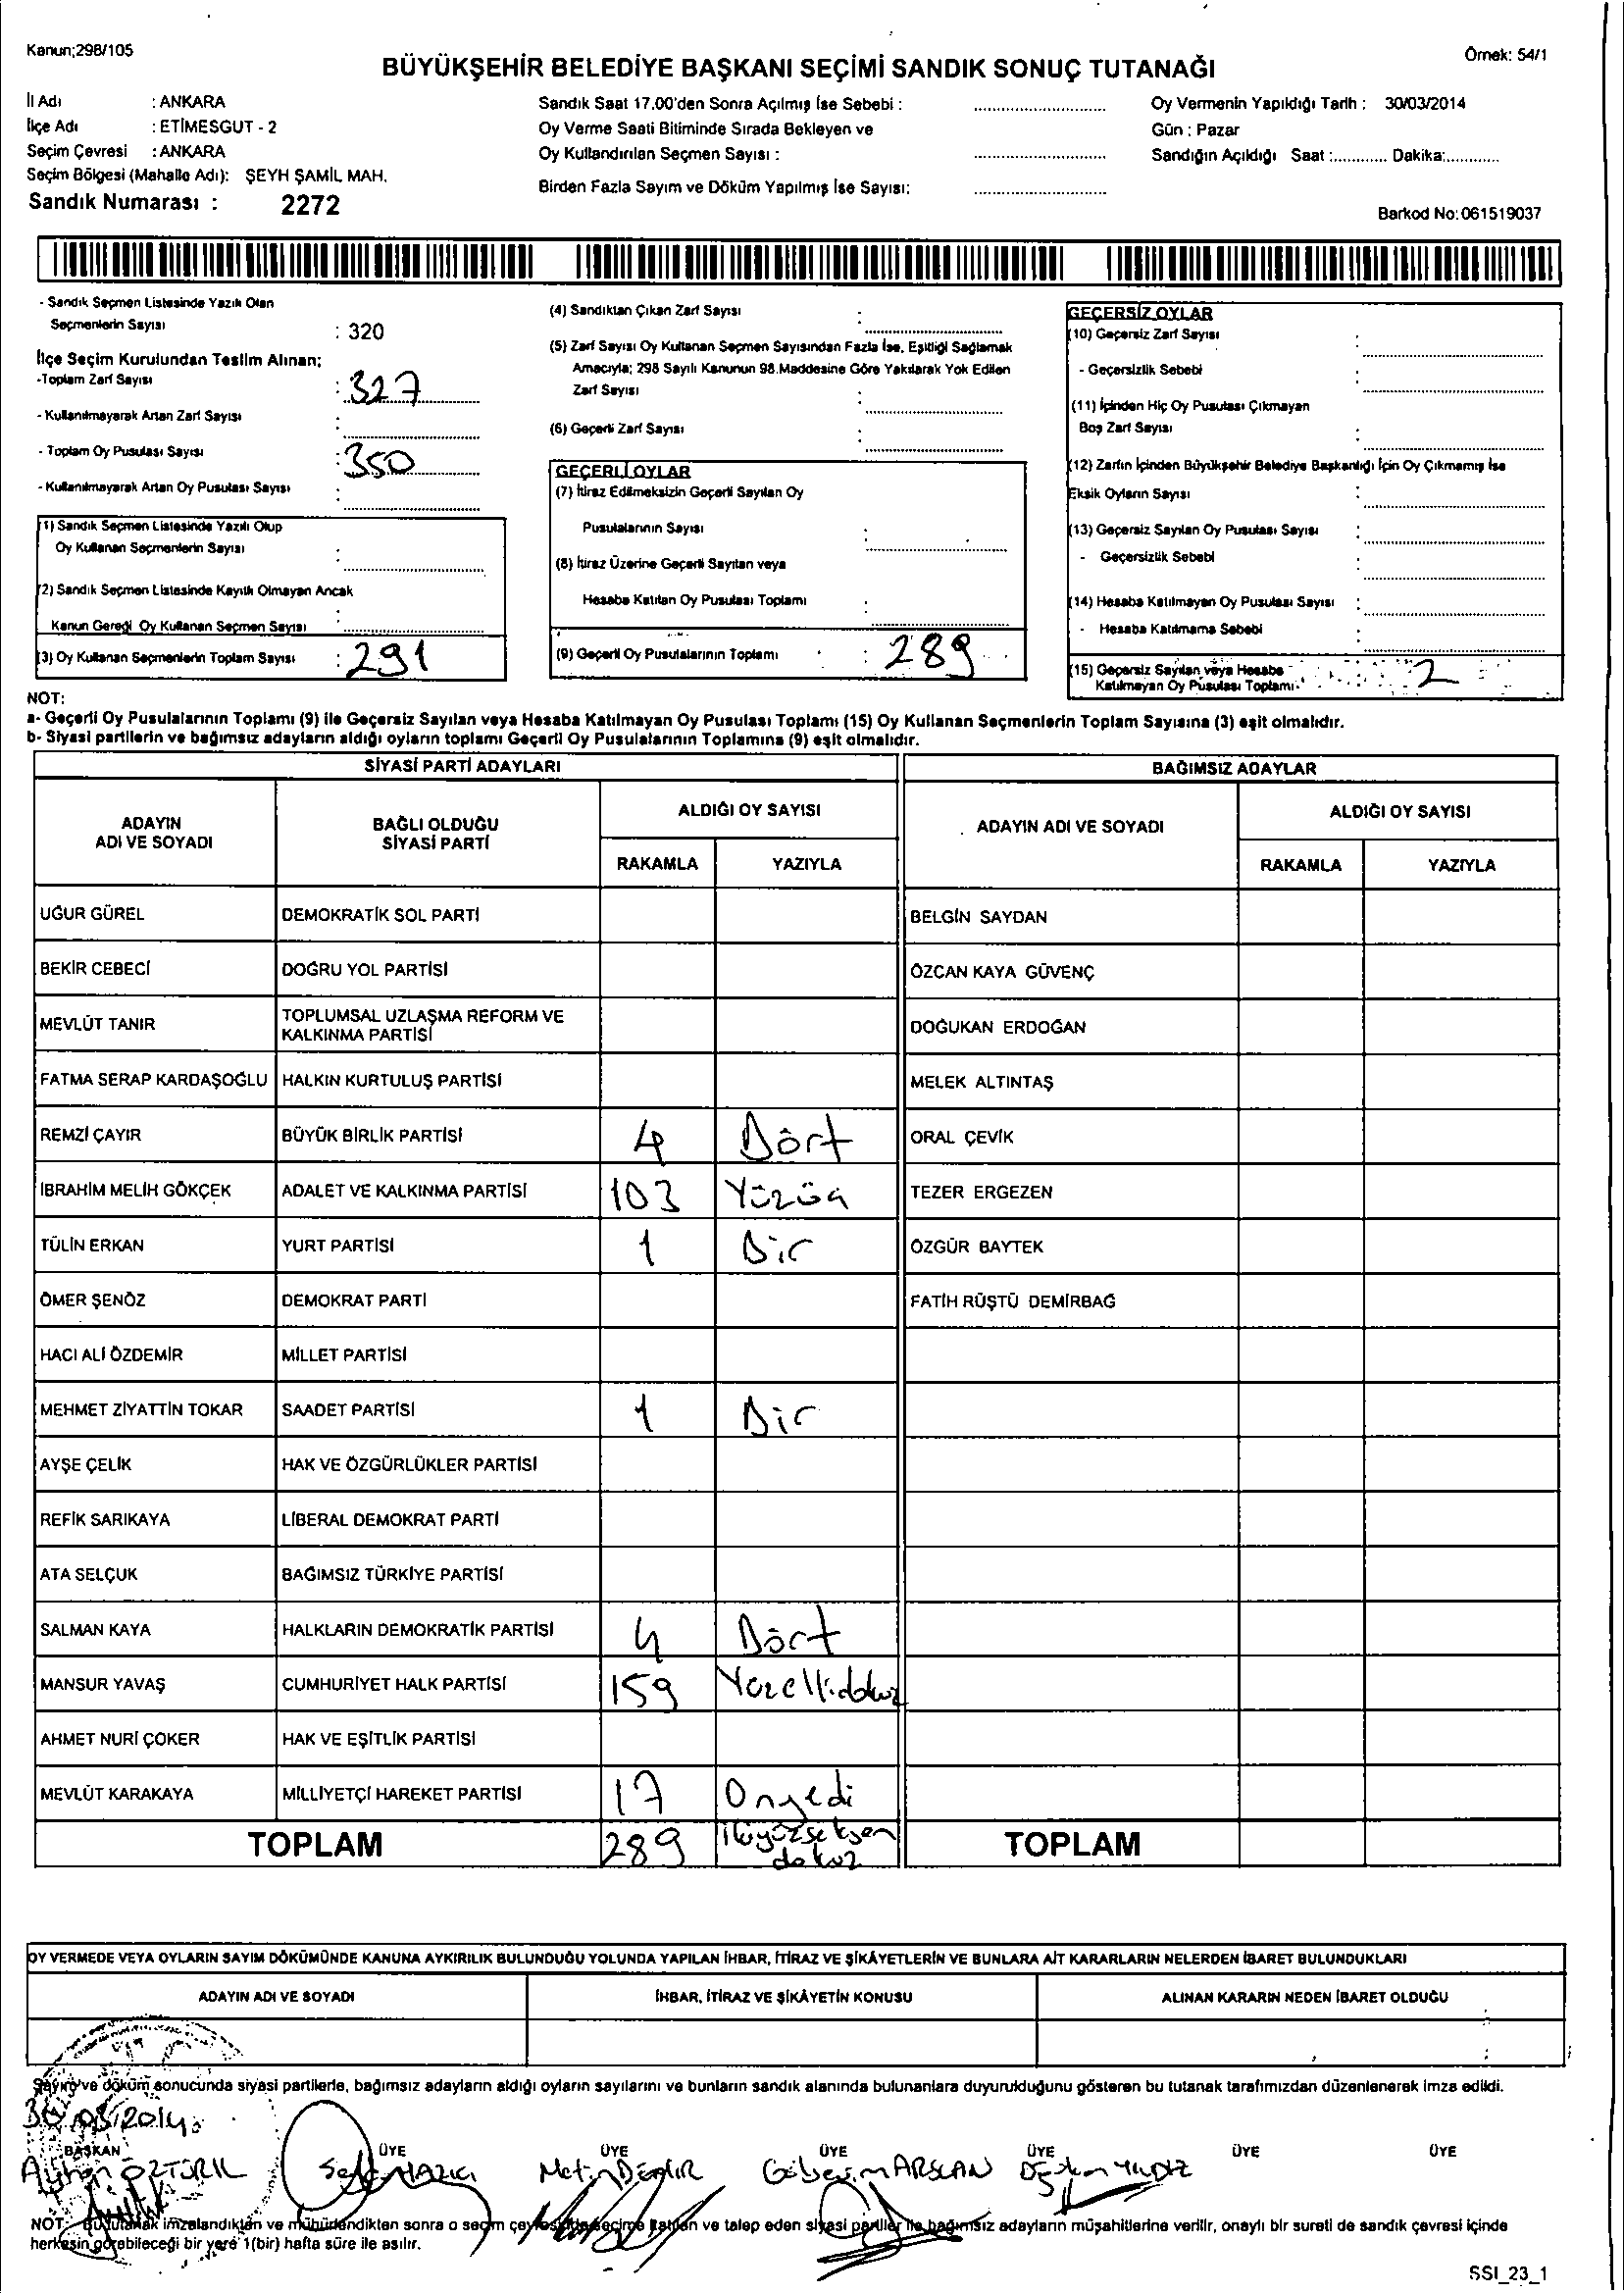 Kanun;298/105
Örnek: 54/1
BÜYÜKŞEHİR BELEDİYE BAŞKANI SEÇİMİ SANDIK SONUÇ TUTANAĞI
İl Adı : ANKARA
İlçe Adı : ETİMESGUT - 2
Seçim Çevresi : ANKARA
Seçim Bölgesi (Mahalle Adı): ŞEYH ŞAMİL MAH.
Sandık Numarası : 2272
Sandık Saat 17.00'den Sonra Açılmış İse Sebebi :
Oy Verme Saati Bitiminde Sırada Bekleyen ve
Oy Kullandırılan Seçmen Sayısı :
Birden Fazla Sayım ve Döküm Yapılmış İse Sayısı:
Oy Vermenin Yapıldığı Tarih : 30/03/2014
Gün : Pazar
Sandığın Açıldığı Saat :............ Dakika:............
Barkod No: 061519037
- Sandık Seçmen Listesinde Yazılı Olan
Seçmenlerin Sayısı : 320
İlçe Seçim Kurulundan Teslim Alınan;
-Toplam Zarf Sayısı : 327
- Kullanılmayarak Artan Zarf Sayısı :
- Toplam Oy Pusulası Sayısı : 350
- Kullanılmayarak Artan Oy Pusulası Sayısı :
(1) Sandık Seçmen Listesinde Yazılı Olup
Oy Kullanan Seçmenlerin Sayısı :
(2) Sandık Seçmen Listesinde Kayıtlı Olmayan Ancak
Kanun Gereği Oy Kullanan Seçmen Sayısı :
(3) Oy Kullanan Seçmenlerin Toplam Sayısı : 291
(4) Sandıktan Çıkan Zarf Sayısı :
(5) Zarf Sayısı Oy Kullanan Seçmen Sayısından Fazla İse, Eşitliği Sağlamak
Amacıyla; 298 Sayılı Kanunun 98.Maddesine Göre Yakılarak Yok Edilen
Zarf Sayısı :
(6) Geçerli Zarf Sayısı :
GEÇERLİ OYLAR
(7) İtiraz Edilmeksizin Geçerli Sayılan Oy
Pusulalarının Sayısı :
(8) İtiraz Üzerine Geçerli Sayılan veya
Hesaba Katılan Oy Pusulası Toplamı :
(9) Geçerli Oy Pusulalarının Toplamı : 289
GEÇERSİZ OYLAR
(10) Geçersiz Zarf Sayısı :
- Geçersizlik Sebebi :
(11) İçinden Hiç Oy Pusulası Çıkmayan
Boş Zarf Sayısı :
(12) Zarfın İçinden Büyükşehir Belediye Başkanlığı İçin Oy Çıkmamış İse
Eksik Oyların Sayısı :
(13) Geçersiz Sayılan Oy Pusulası Sayısı :
- Geçersizlik Sebebi :
(14) Hesaba Katılmayan Oy Pusulası Sayısı :
- Hesaba Katılmama Sebebi :
(15) Geçersiz Sayılan veya Hesaba
Katılmayan Oy Pusulası Toplamı 2
NOT:
a- Geçerli Oy Pusulalarının Toplamı (9) ile Geçersiz Sayılan veya Hesaba Katılmayan Oy Pusulası Toplamı (15) Oy Kullanan Seçmenlerin Toplam Sayısına (3) eşit olmalıdır.
b- Siyasi partilerin ve bağımsız adayların aldığı oyların toplamı Geçerli Oy Pusulalarının Toplamına (9) eşit olmalıdır.
SİYASİ PARTİ ADAYLARI
ADAYIN
ADI VE SOYADI
BAĞLI OLDUĞU
SİYASİ PARTİ
ALDIĞI OY SAYISI
RAKAMLA YAZIYLA
UĞUR GÜREL DEMOKRATİK SOL PARTİ
BEKİR CEBECİ DOĞRU YOL PARTİSİ
MEVLÜT TANIR TOPLUMSAL UZLAŞMA REFORM VE
KALKINMA PARTİSİ
FATMA SERAP KARDAŞOĞLU HALKIN KURTULUŞ PARTİSİ
REMZİ ÇAYIR BÜYÜK BİRLİK PARTİSİ 4 Dört
İBRAHİM MELİH GÖKÇEK ADALET VE KALKINMA PARTİSİ 103 Yüzüç
TÜLİN ERKAN YURT PARTİSİ 1 Bir
ÖMER ŞENÖZ DEMOKRAT PARTİ
HACI ALİ ÖZDEMİR MİLLET PARTİSİ
MEHMET ZİYATTİN TOKAR SAADET PARTİSİ 1 Bir
AYŞE ÇELİK HAK VE ÖZGÜRLÜKLER PARTİSİ
REFİK SARIKAYA LİBERAL DEMOKRAT PARTİ
ATA SELÇUK BAĞIMSIZ TÜRKİYE PARTİSİ
SALMAN KAYA HALKLARIN DEMOKRATİK PARTİSİ 4 Dört
MANSUR YAVAŞ CUMHURİYET HALK PARTİSİ 159 Yüzellidokuz
AHMET NURİ ÇOKER HAK VE EŞİTLİK PARTİSİ
MEVLÜT KARAKAYA MİLLİYETÇİ HAREKET PARTİSİ 17 Onyedi
TOPLAM 289 İkiyüzseksen
dokuz
BAĞIMSIZ ADAYLAR
ADAYIN ADI VE SOYADI
ALDIĞI OY SAYISI
RAKAMLA YAZIYLA
BELGİN SAYDAN
ÖZCAN KAYA GÜVENÇ
DOĞUKAN ERDOĞAN
MELEK ALTINTAŞ
ORAL ÇEVİK
TEZER ERGEZEN
ÖZGÜR BAYTEK
FATİH RÜŞTÜ DEMİRBAĞ
TOPLAM
OY VERMEDE VEYA OYLARIN SAYIM DÖKÜMÜNDE KANUNA AYKIRILIK BULUNDUĞU YOLUNDA YAPILAN İHBAR, İTİRAZ VE ŞİKÂYETLERİN VE BUNLARA AİT KARARLARIN NELERDEN İBARET BULUNDUKLARI
ADAYIN ADI VE SOYADI İHBAR, İTİRAZ VE ŞİKÂYETİN KONUSU ALINAN KARARIN NEDEN İBARET OLDUĞU
Sayım ve döküm sonucunda siyasi partilerle, bağımsız adayların aldığı oyların sayılarını ve bunların sandık alanında bulunanlara duyurulduğunu gösteren bu tutanak tarafımızdan düzenlenerek imza edildi.
30/03/2014
BAŞKAN ÜYE ÜYE ÜYE ÜYE ÜYE ÜYE
Ayhan ÖZTÜRK YAZICI Metin DEMİR ARSLAN YILDIZ
NOT: Bu tutanak imzalandıktan ve mühürlendikten sonra o seçim çevresinde seçime katılan ve talep eden siyasi partiler ile bağımsız adayların müşahitlerine verilir, onaylı bir sureti de sandık çevresi içinde
herkesin görebileceği bir yere 1(bir) hafta süre ile asılır.
SSI_23_1